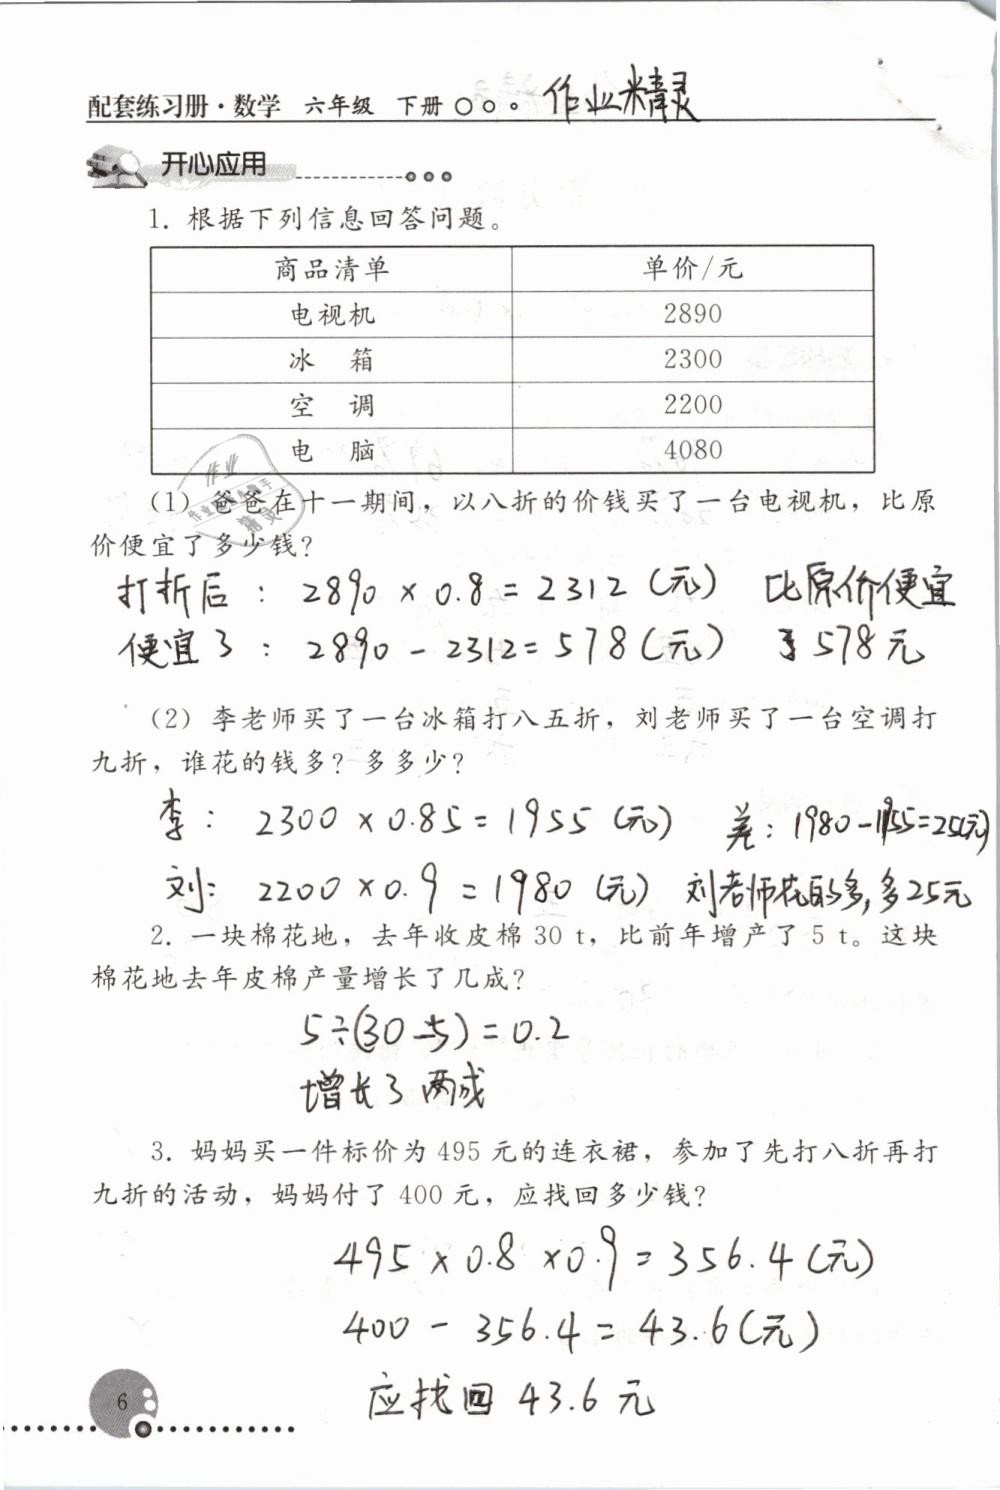 配套练习册·数学 六年级 下册 作业精灵
开心应用
1. 根据下列信息回答问题。
商品清单 单价/元
电视机 2890
冰 箱 2300
空 调 2200
电 脑 4080
作业
精灵
(1) 爸爸在十一期间，以八折的价钱买了一台电视机，比原
价便宜了多少钱？
打折后：2890×0.8=2312(元) 比原价便宜
便宜了：2890-2312=578(元) 了578元
(2) 李老师买了一台冰箱打八五折，刘老师买了一台空调打
九折，谁花的钱多？多多少？
李：2300×0.85=1955(元) 差：1980-1955=25(元)
刘：2200×0.9=1980(元) 刘老师花的多,多25元
2. 一块棉花地，去年收皮棉 30 t，比前年增产了 5 t。这块
棉花地去年皮棉产量增长了几成？
5÷(30-5)=0.2
增长了两成
3. 妈妈买一件标价为 495 元的连衣裙，参加了先打八折再打
九折的活动，妈妈付了 400 元，应找回多少钱？
495×0.8×0.9=356.4(元)
400-356.4=43.6(元)
应找回 43.6 元
6